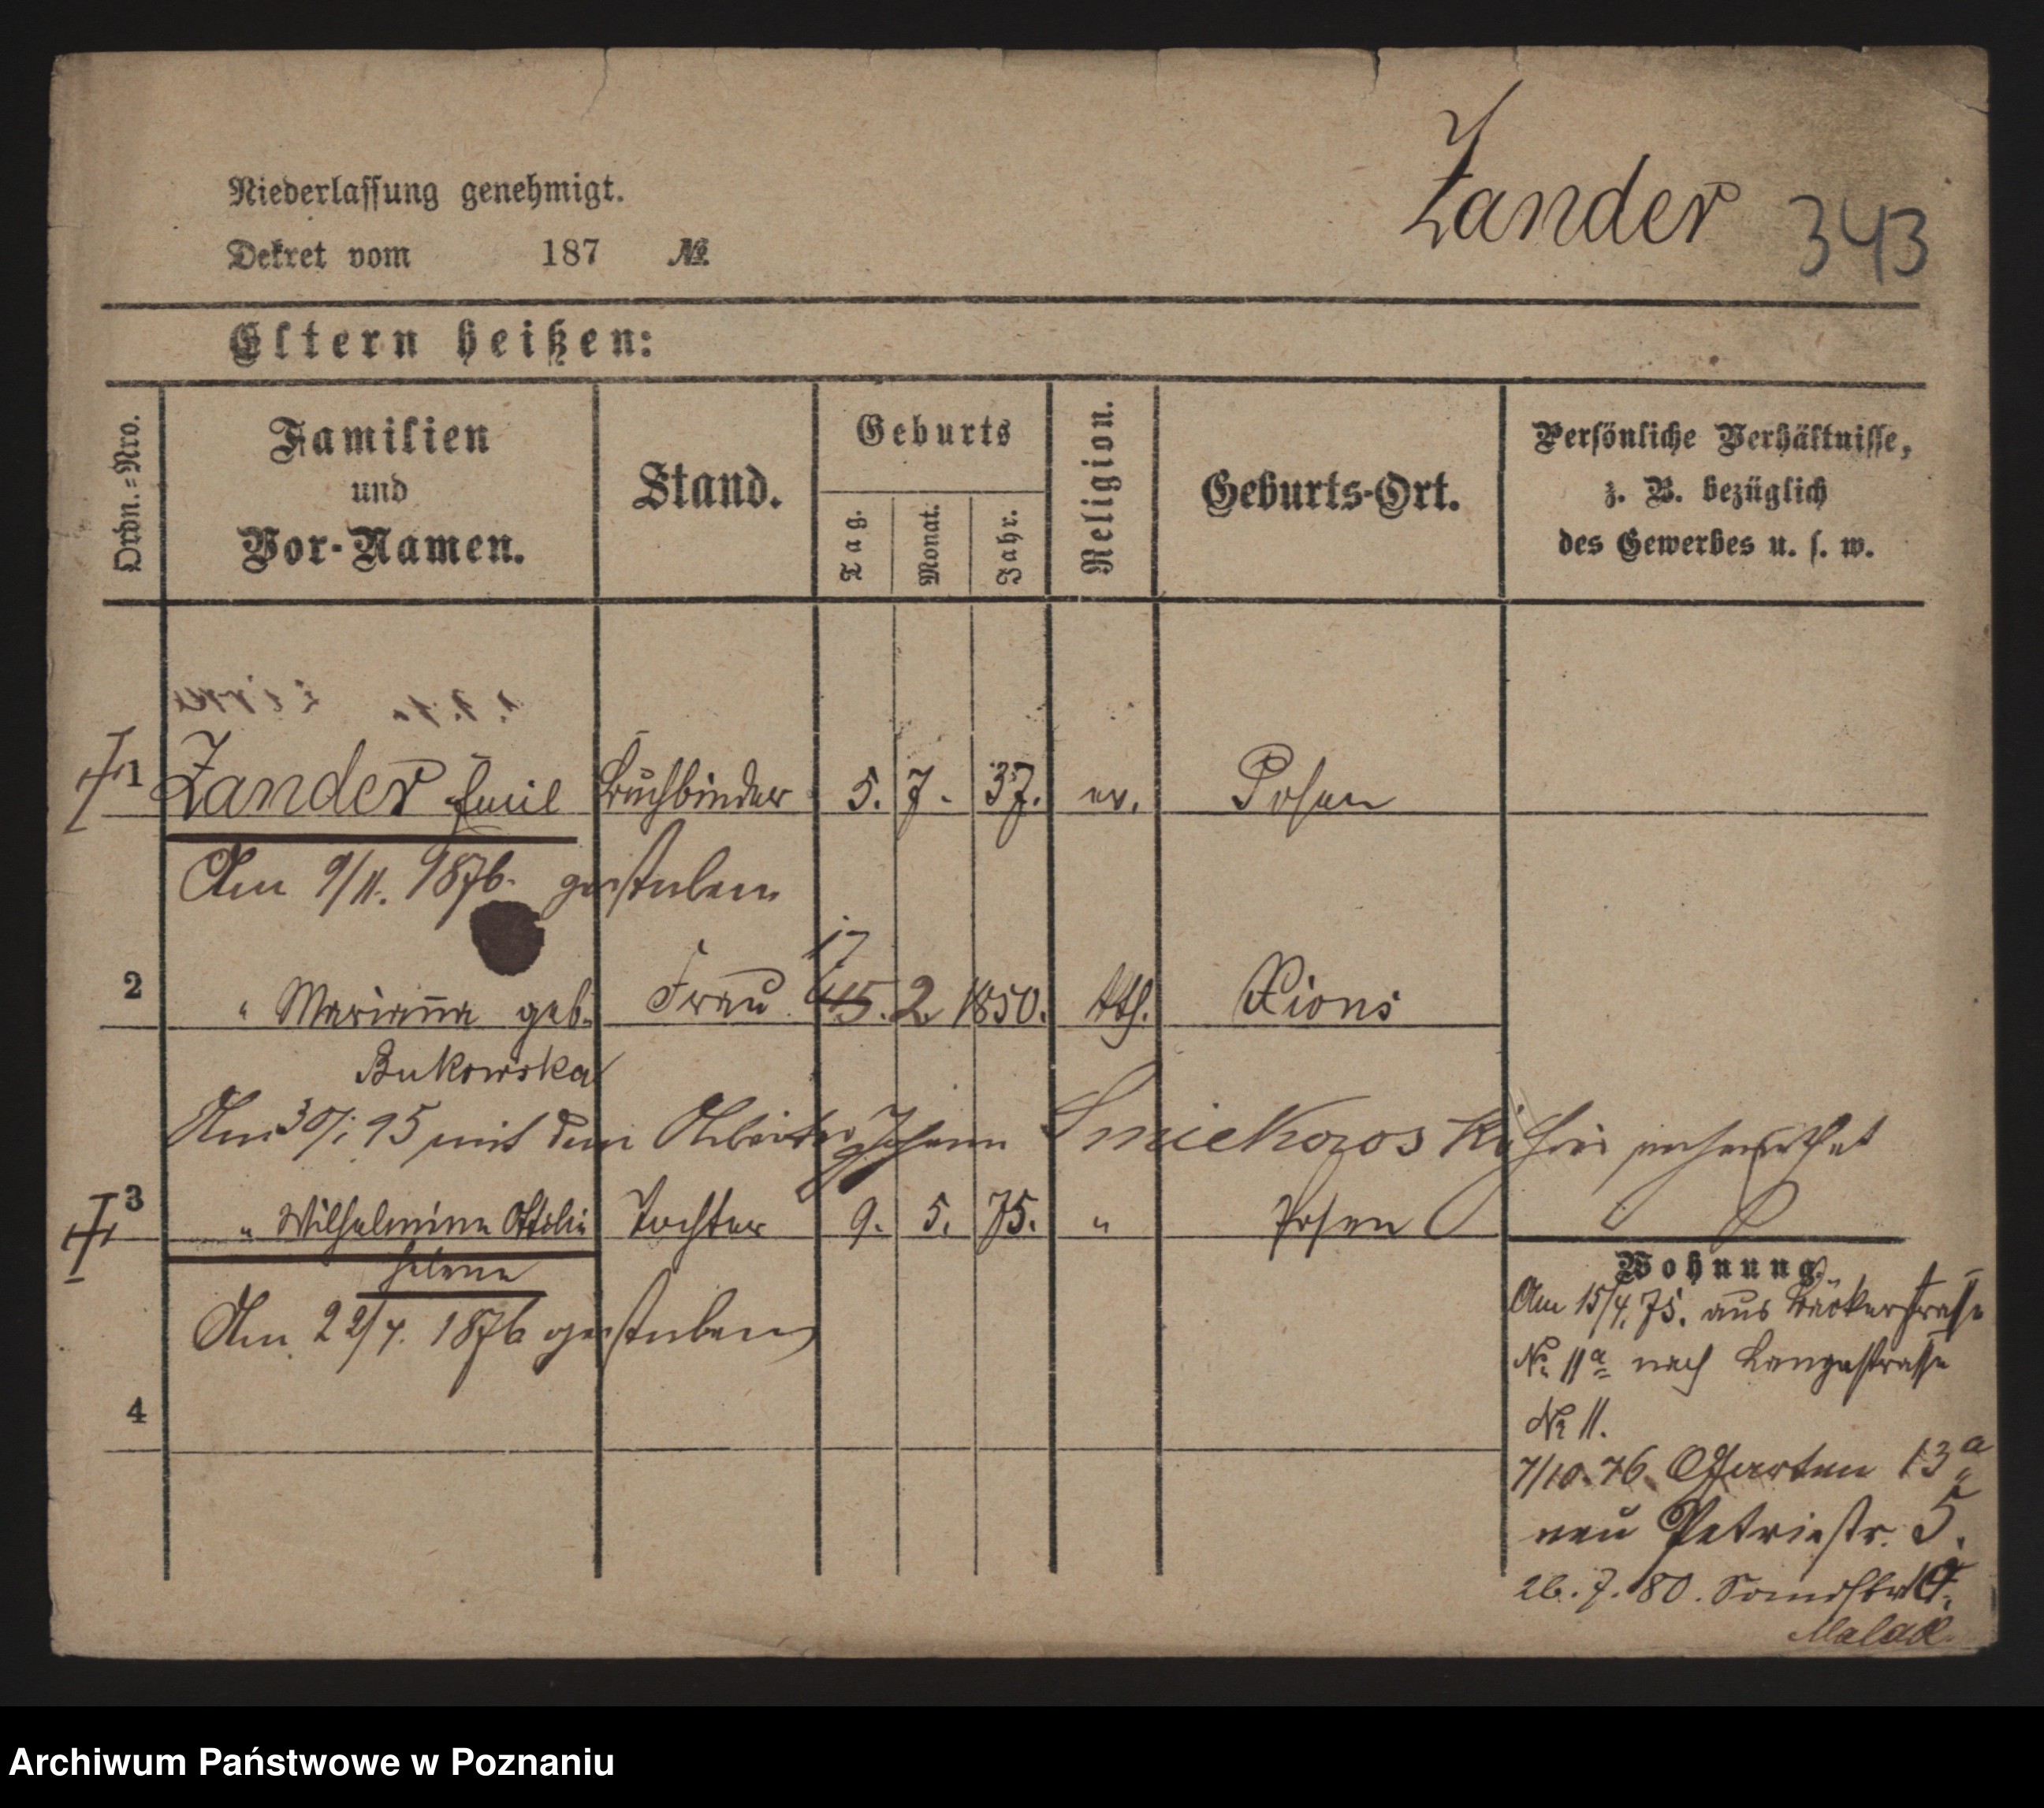 Zander 343
Niederlassung genehmigt.
Dekret vom 187 №
Eltern heißen:
Ordn.=Nro.
Familien
und
Vor-Namen.
Stand.
Geburts
Tag.
Monat.
Jahr.
Religion.
Geburts-Ort.
Persönliche Verhältnisse,
z. B. bezüglich
des Gewerbes u. s. w.
1 Zander Emil Buchbinder 5. 7. 37. ev. Posen
Am 9/11. 1876. gestorben
17
2 " Marianna geb. Frau 15. 2. 1850. kth. Xions
Bukowska
Am 30/1 95 mit dem Arbeiter Johann Smiekowski hier verheirathet
3 " Wilhelmine Ottilie Tochter 9. 5. 75. " Posen
Helene
Am 22/7. 1876 gestorben
Wohnung.
Am 15/4. 75. aus Bäckerstrasse
№ 11a nach Langestrasse
№ 11.
7/10. 76 Garten 13a
neu Petristr. 5.
26. 7. 80.
4
Archiwum Państwowe w Poznaniu